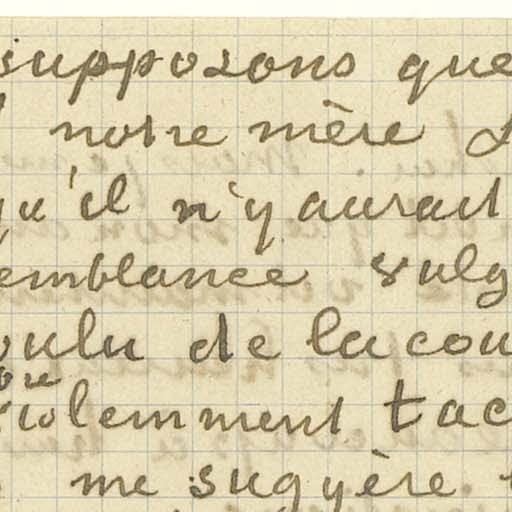 supposons que
notre mère
qu'il n'y aurait
emblance vulg
oulu de la cou
ou
violemment tac
me suggère